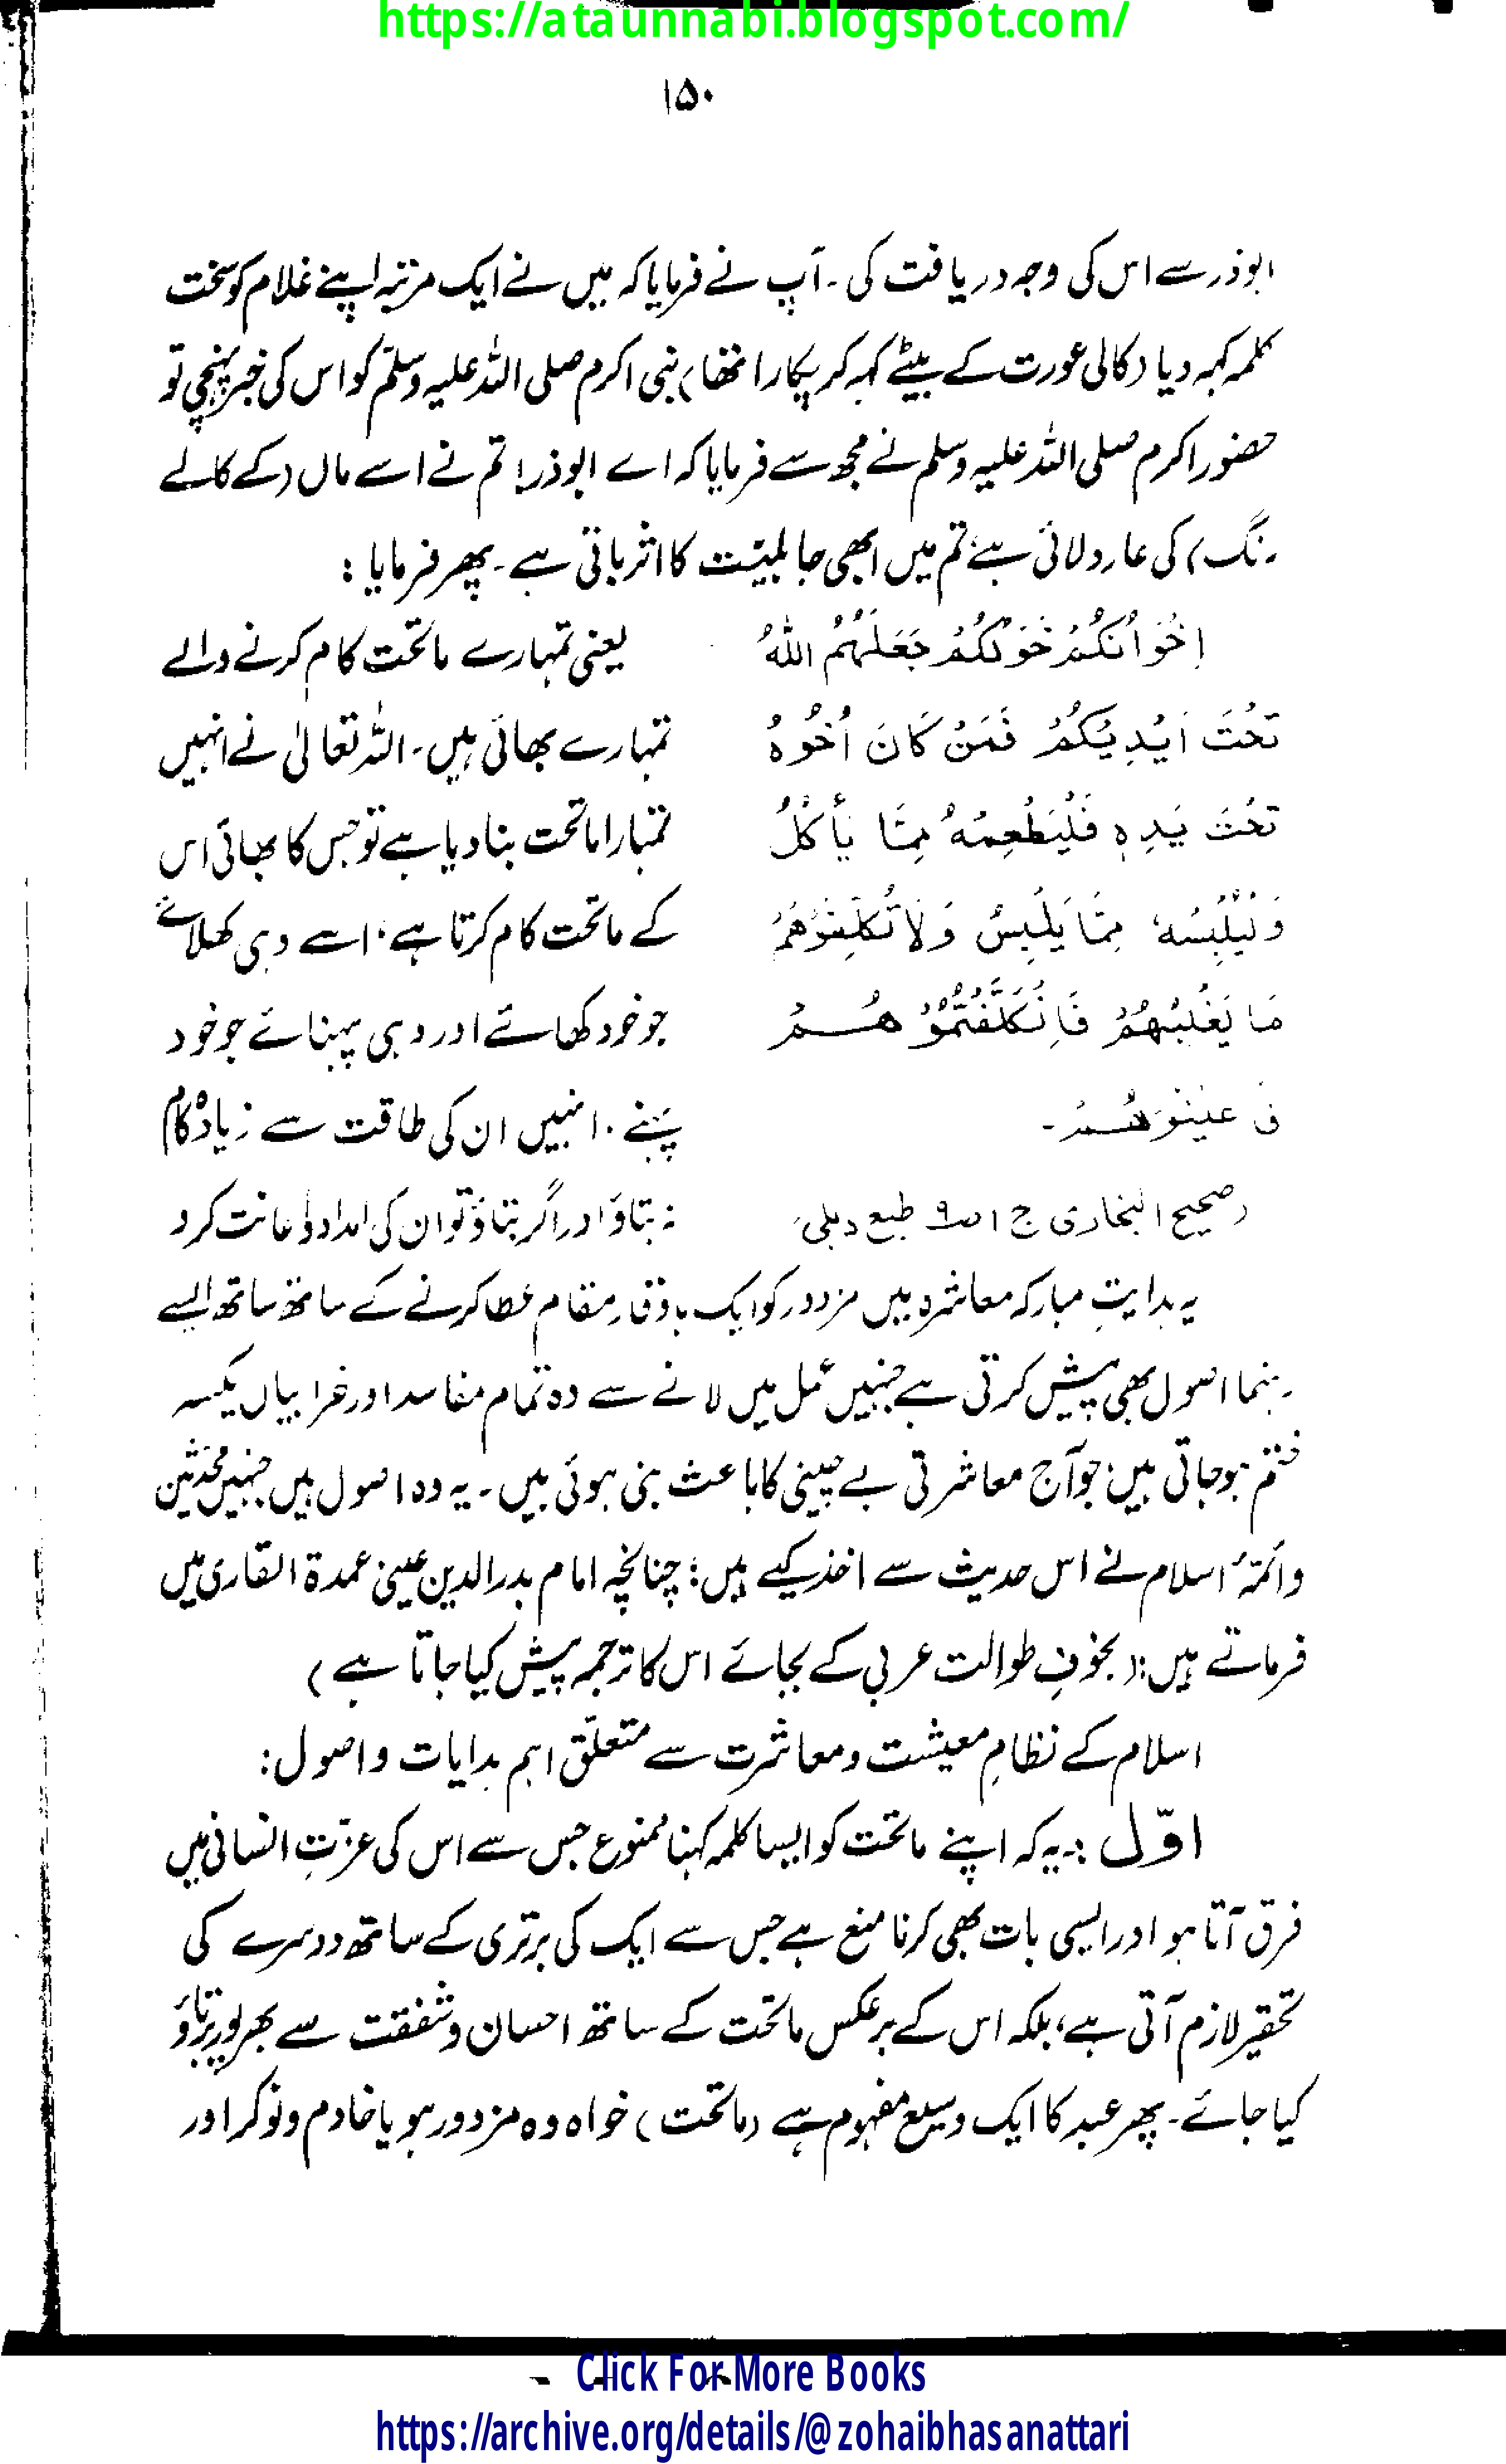 https://ataunnabi.blogspot.com/
۱۵۰
ابوذر سے اس کی وجہ دریافت کی۔ آپ نے فرمایا کہ میں نے ایک مرتبہ اپنے غلام کو سخت
کلمہ کہہ دیا (کالی عورت کے بیٹے کہہ کر پکارا تھا) نبی اکرم صلی اللہ علیہ وسلّم کو اس کی خبر پہنچی تو
حضور اکرم صلی اللہ علیہ وسلم نے مجھ سے فرمایا کہ اے ابوذر! تم نے اسے ماں (کے کالے
رنگ) کی عار دلائی ہے، تم میں ابھی جاہلیّت کا اثر باقی ہے۔ پھر فرمایا :
اِخْوَانُكُمْ خَوَلُكُمْ جَعَلَهُمُ اللهُ
تَحْتَ اَيْدِيْكُمْ فَمَنْ كَانَ اَخُوْهُ
تَحْتَ يَدِهٖ فَلْيُطْعِمْهُ مِمَّا يَأْكُلُ
وَلْيُلْبِسْهُ مِمَّا يَلْبِسُ وَلَا تُكَلِّفُوْهُمْ
مَا يَغْلِبُهُمْ فَاِنْ كَلَّفْتُمُوْهُمْ
فَاَعِيْنُوْهُمْ۔
(صحیح البخاری ج ۱ ص۹ طبع دہلی)
یعنی تمہارے ماتحت کام کرنے والے
تمہارے بھائی ہیں۔ اللہ تعالیٰ نے انہیں
تمہارا ماتحت بنا دیا ہے تو جس کا بھائی اس
کے ماتحت کام کرتا ہے، اسے وہی کھلائے
جو خود کھائے اور وہی پہنائے جو خود
پہنے۔ انہیں ان کی طاقت سے زیادہ کام
نہ بتاؤ اور اگر بتاؤ تو ان کی امداد و اعانت کرو
یہ ہدایتِ مبارکہ معاشرہ میں مزدور کو ایک باوقار مقام عطا کرنے کے ساتھ ساتھ ایسے
رہنما اصول بھی پیش کرتی ہے جنہیں عمل میں لانے سے وہ تمام مفاسد اور خرابیاں یکسر
ختم ہو جاتی ہیں، جو آج معاشرتی بے چینی کا باعث بنی ہوئی ہیں۔ یہ وہ اصول ہیں جنہیں محدّثین
وائمّۂ اسلام نے اس حدیث سے اخذ کیے ہیں؛ چنانچہ امام بدرالدین عینی عمدۃ القاری میں
فرماتے ہیں: (بخوفِ طوالت عربی کے بجائے اس کا ترجمہ پیش کیا جاتا ہے)
اسلام کے نظامِ معیشت و معاشرت سے متعلّق اہم ہدایات و اصول:
اوّل :۔ یہ کہ اپنے ماتحت کو ایسا کلمہ کہنا ممنوع جس سے اس کی عزّتِ انسانی میں
فرق آتا ہو اور ایسی بات بھی کرنا منع ہے جس سے ایک کی برتری کے ساتھ دوسرے کی
تحقیر لازم آتی ہے، بلکہ اس کے برعکس ماتحت کے ساتھ احسان و شفقت سے بھرپور برتاؤ
کیا جائے۔ پھر عبد کا ایک وسیع مفہوم ہے (ماتحت) خواہ وہ مزدور ہو یا خادم و نوکر اور
Click For More Books
https://archive.org/details/@zohaibhasanattari